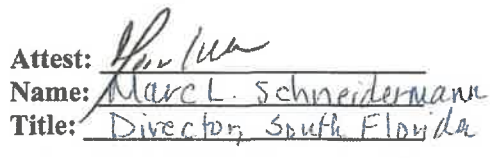 Attest:
Name: Marc L. Schneidermann
Title: Director, South Florida